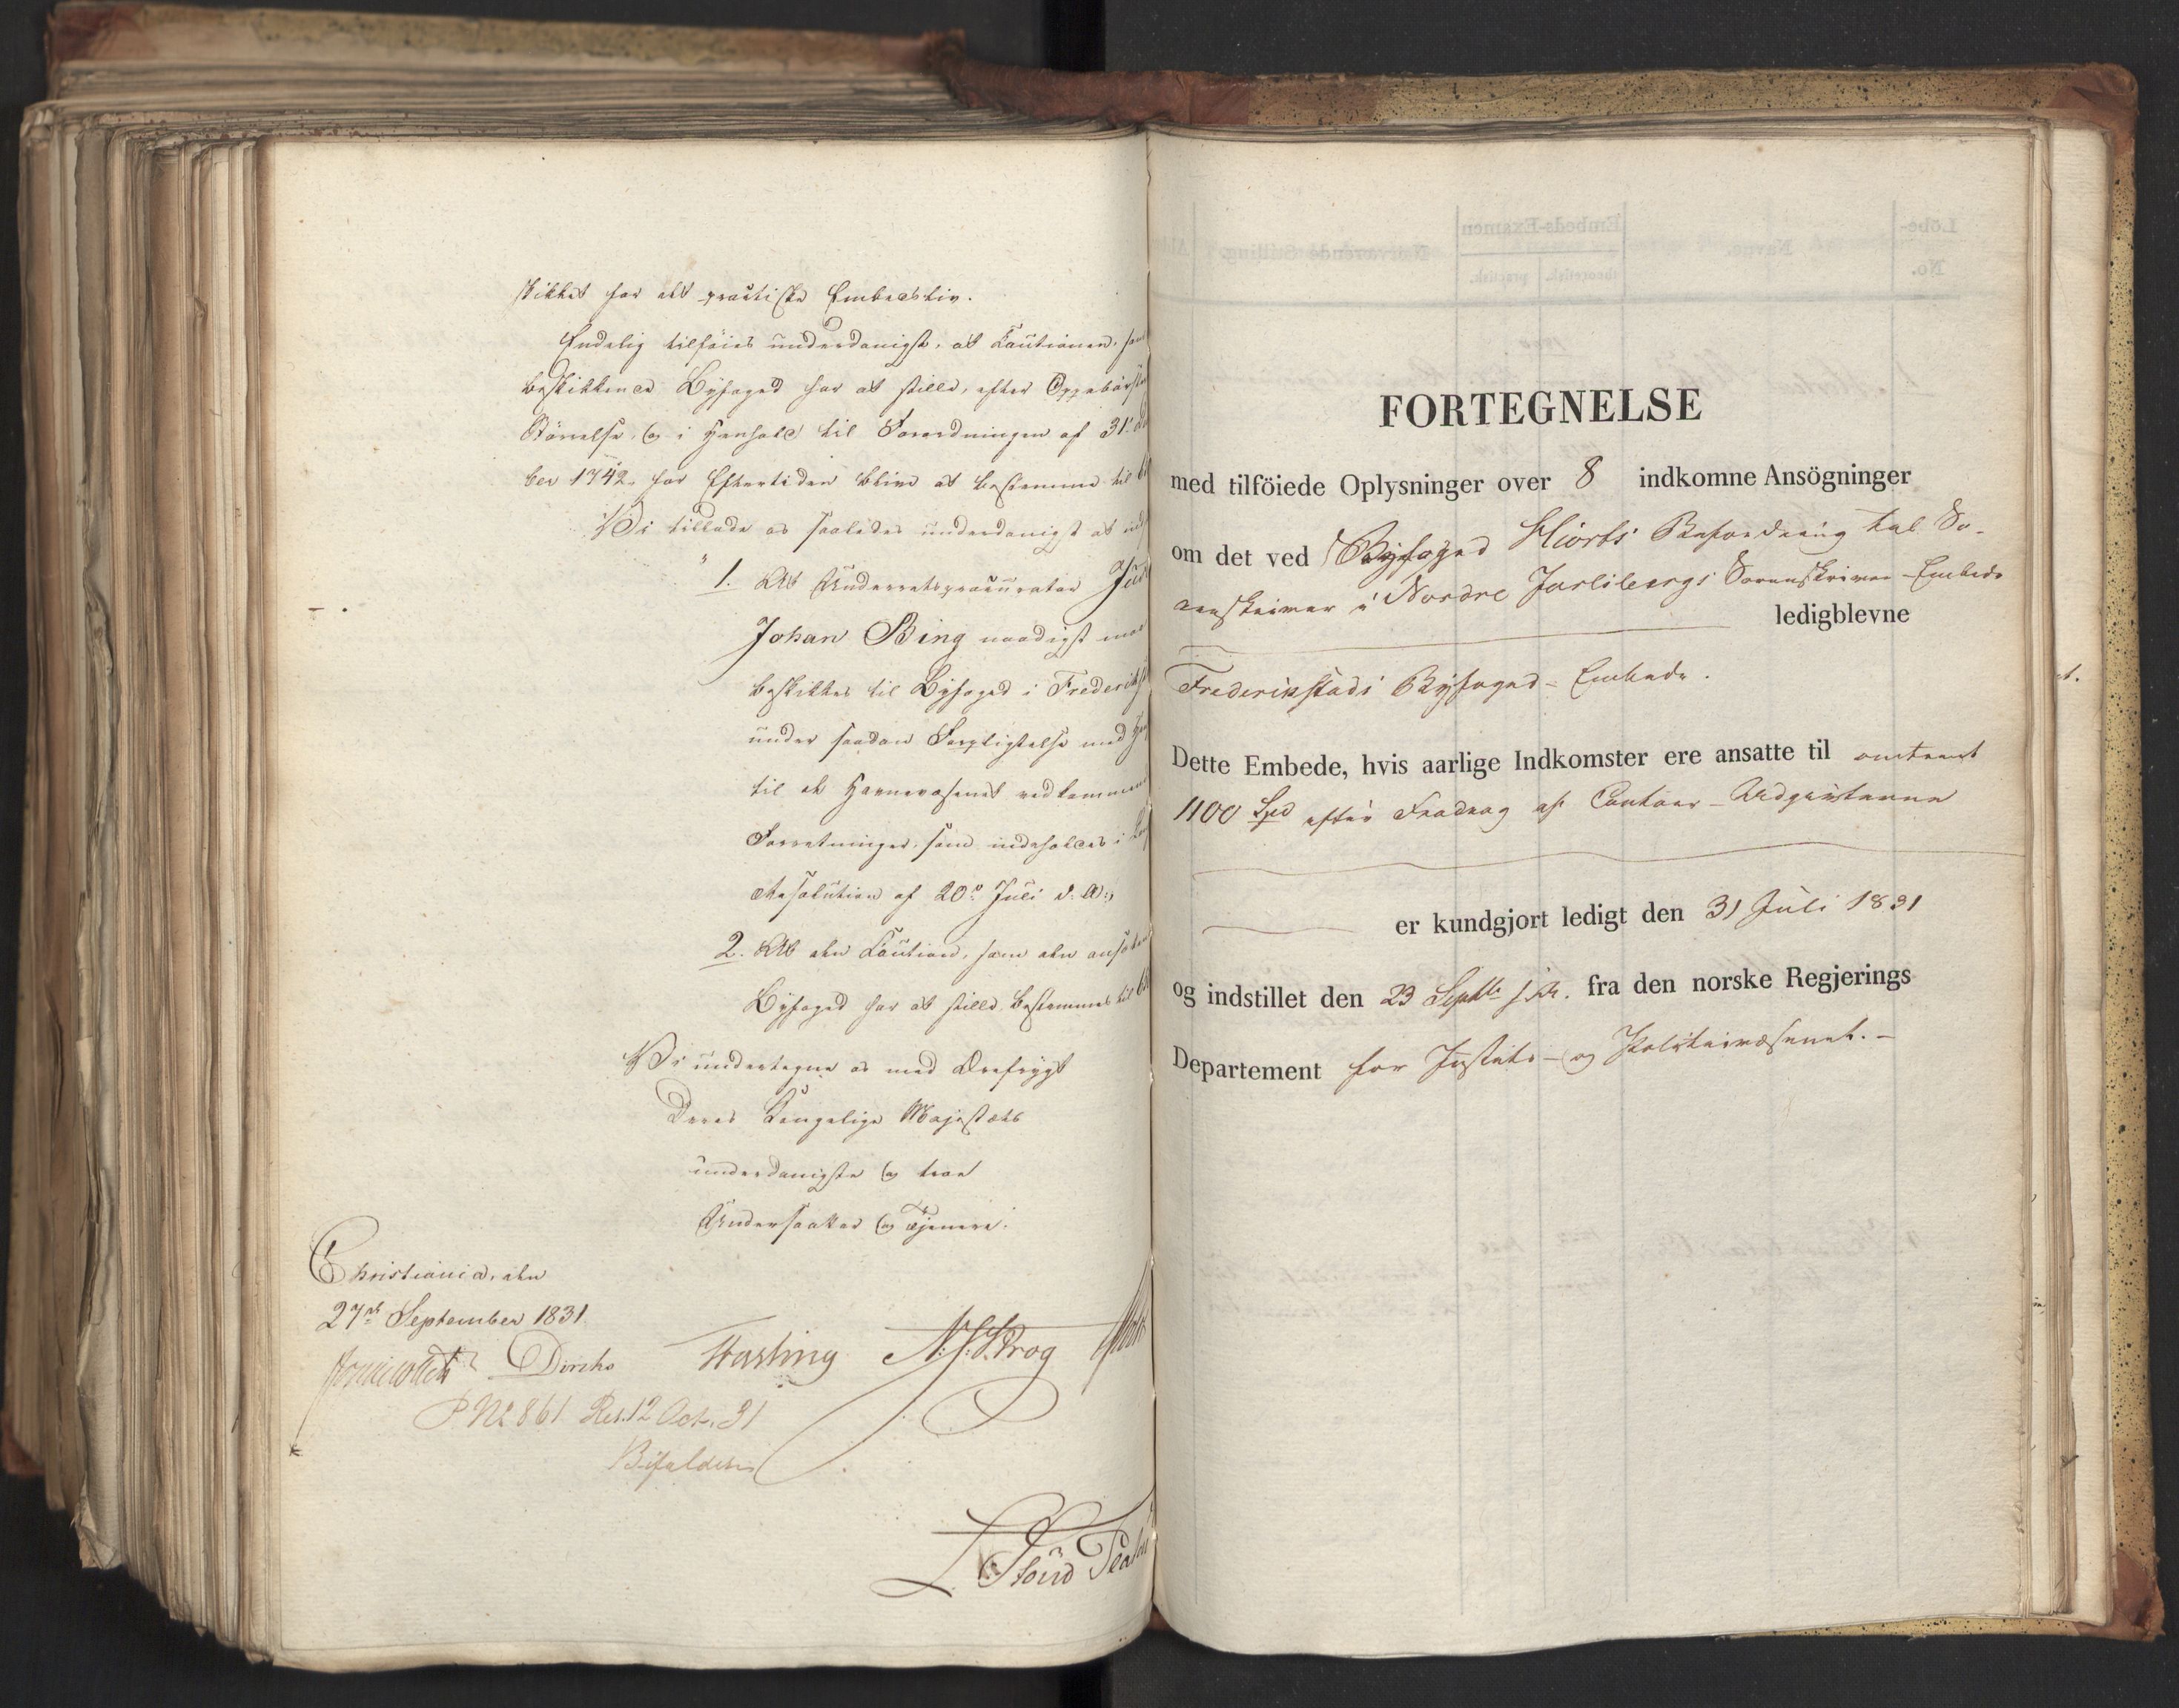 skikket for det practiske Embedsliv.
Endelig tilföies underdanigst, at Cautionen, som
beskikkende Byfoged har at stille, efter Oppebørsle
Störrelse, og i Henhold til Forordningen af 31
ber 1742, for Eftertiden blive at bestemme til
Vi tillade os saaledes underdanigst at
1. At Underretsprocurator
Johan Bing naadigst
beskikkes til Byfoged i Frederikst
under saadan Forpligtelse med
til de Havnevæsenet vedkommen
Forretninger, som indeholdes i
Resolution af 20de Juli d. A.;
2. At den Caution, som den ansatte
Byfoged har at stille, bestemmes til
Vi undertegne os med Ærefrygt
Deres Kongelige Majestæts
underdanigste og troe
Undersaatter og Tjenere.
Christiania, den
27de September 1831.
Jonas Collett Diriks Fasting N. J. S. Krog
P. No 861 Res. 12 Oct. 31
Bifaldes
FORTEGNELSE
med tilföiede Oplysninger over 8 indkomne Ansögninger
om det ved Byfoged Hiorts Befordring til So-
renskriver i Nordre Jarlsbergs Sorenskriver-Embede
ledigblevne
Frederikstads Byfoged-Embede.
Dette Embede, hvis aarlige Indkomster ere ansatte til omtrent
1100 Spd efter Fradrag af Contoir-Udgifterne
er kundgjort ledigt den 31 Juli 1831
og indstillet den 23 Septbr s. A. fra den norske Regjerings
Departement for Justits- og Politievæsenet.-